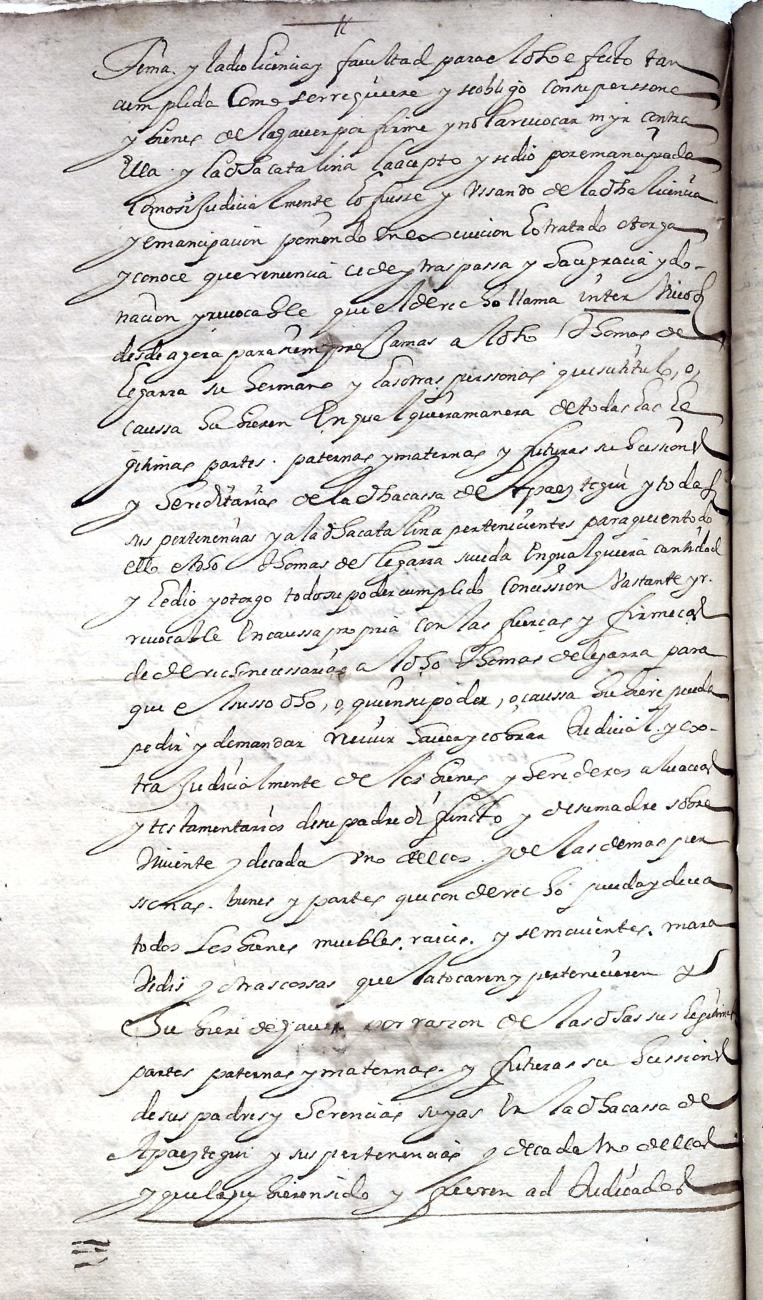 fema. y la dio licencia y facultad para el dho efeto tan
cumplida Como serrequiere y se obligo con su perssona
y bienes de la haver por firme y no la revocar ni yr contra
Ella. y la dha catalina la acepto y se dio por emancipada
Como si Judicialmente lo fuesse y Ussando de la dha licencia
y emancipacion poniendo en execucion lo tratado otorga
y conoce que renuncia cede y traspassa y hace gracia y do-
nacion yrrevocable que el derecho llama inter vivos
desde agora para siempre Jamas a el dho thomas de
legarra su hermano y las otras perssonas que su titulo, o,
caussa hubieren En qualquiera manera de todas las le
gitimas partes. paternas y maternas y futuras subcession
y hereditarias de la dha cassa de Apaeztegui y todas
sus pertenencias y a la dha catalina pertenecientes para que en todo
ello el dho thomas de legarra suceda En qualquiera cantidad
y le dio y otorgo todo su poder cumplido Concession Vastante yr-
revocable En caussa propria con las fuerças y firmeças
de derecho necessarias a el dho thomas de legarra para
que el susso dho, o, quien su poder, o, caussa hubiere pueda
pedir y demandar recivir haver y cobrar Judicial y ex-
tra Judicialmente de los bienes y herederos
y testamentarios de su padre difunto y de su madre sobre
viviente y de cada uno dellos. y de las demas per
ssonas. bienes y partes que con derecho pueda y deva
todos los bienes muebles, raices. y semovientes. mara
vedis y otras cossas que la tocaren y pertenecieren
hubiere de haver por raçon de las dhas sus legitimas
partes paternas y maternas. y futuras subcession
de sus padres y herencias suyas En la dha cassa de
Apaeztegui y sus pertenencias y de cada Uno dellos
y que la hubieren sido y fueren adJudicados